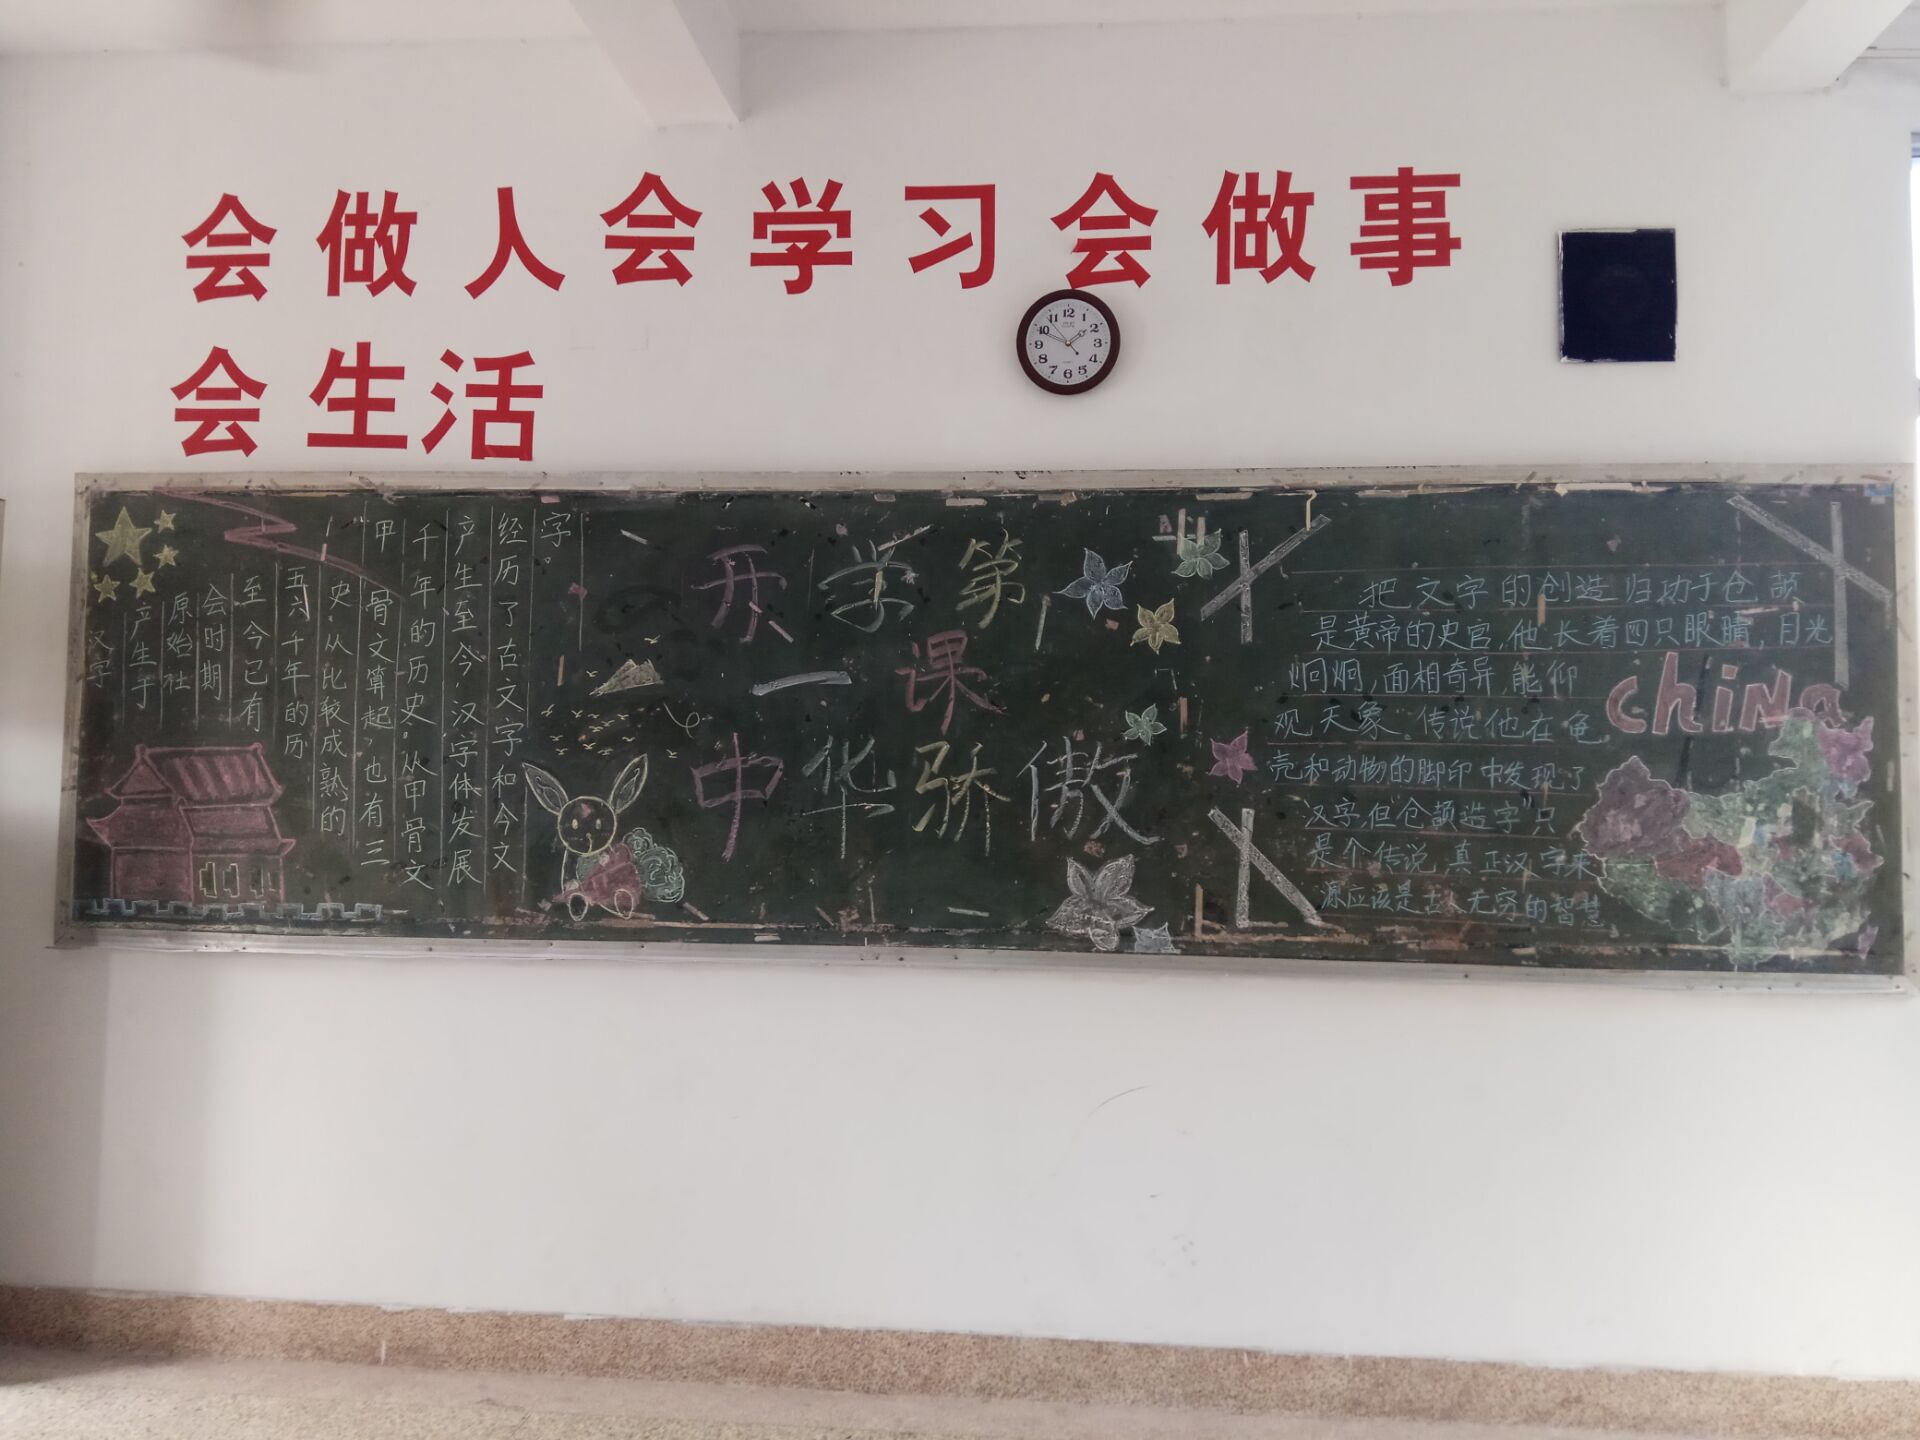 会做人会学习会做事
会生活
汉字
产生于
原始社
会时期
至今已有
五六千年的历
史,从比较成熟的
甲骨文算起,也有三
千年的历史。从甲骨文
产生至今,汉字体发展
经历了古文字和今文
字。
开学第
一课
中华骄傲
把文字的创造归功于仓颉
是黄帝的史官,他长着四只眼睛,目光
炯炯,面相奇异,能仰
观天象。传说他在龟
壳和动物的脚印中发现了
汉字,但“仓颉造字”只
是个传说,真正汉字来
源应该是古人无穷的智慧
chiNa
12
1
2
3
4
5
6
7
8
9
10
11